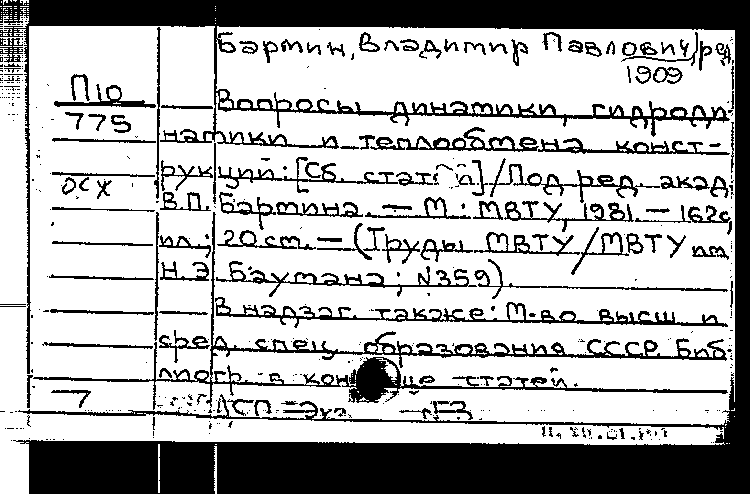 Бармин, Владимир Павлович, ред.
1909
П10
775
осх
Вопросы динамики, гидроди
намики и теплообмена конст-
рукций: [Сб. статей] / Под ред. акад
В.П. Бармина. — М.: МВТУ, 1981. — 162с,
ил.; 20 см. — (Труды МВТУ / МВТУ им
Н.Э. Баумана; №359).
В надзаг. также: М-во высш и
сред. спец. образования СССР. Биб
лиогр. в конце статей.
7
ДСП Экз. №3